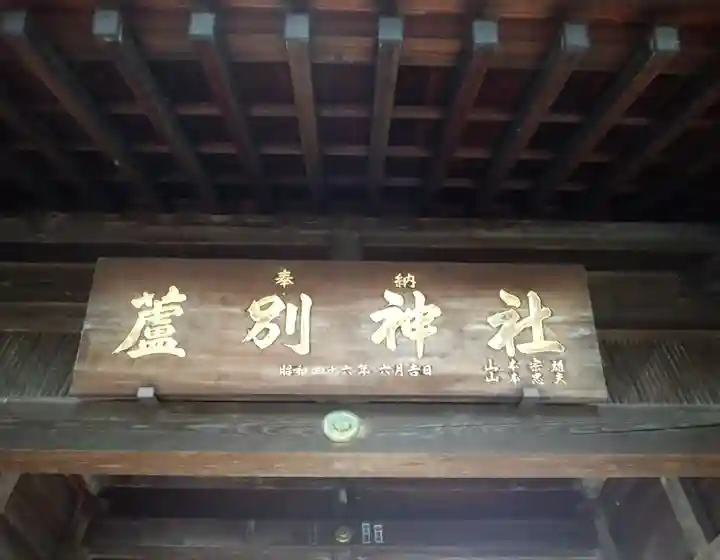 奉納
蘆別神社
昭和四十六年六月吉日
山本宗雄
山本忠夫